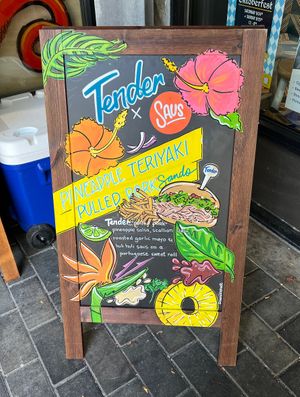 Oktoberfest
Tender
x
Saus
PINEAPPLE TERIYAKI
PULLED PORK Sando
Tender pulled pork,
pineapple salsa, scallion
roasted garlic mayo &
huli huli saus on a
portuguese sweet roll
Tender